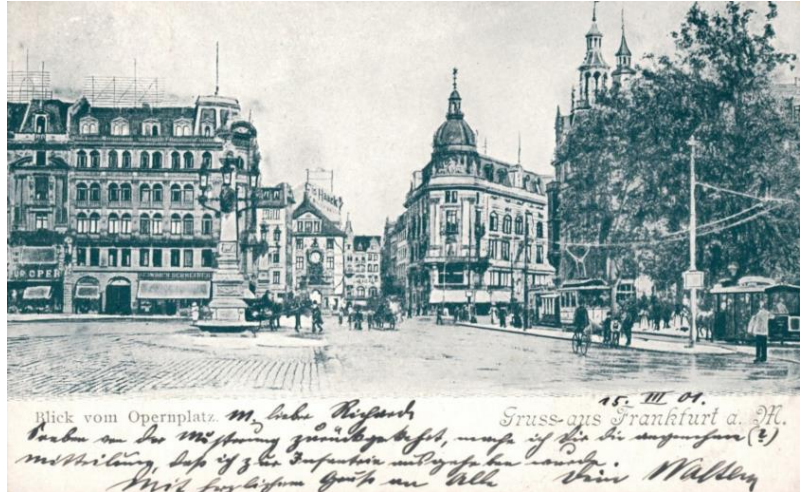 UR OPER
Blick vom Opernplatz.
Gruss aus Frankfurt a. M.
15. III 01.
M. liebe Richard
Soeben von der Musterung zurückgekehrt, mache ich Dir die angenehme (?)
Mitteilung, daß ich zur Infanterie ausgehoben wurde.
Mit herzlichem Gruß an Alle Dein Walter